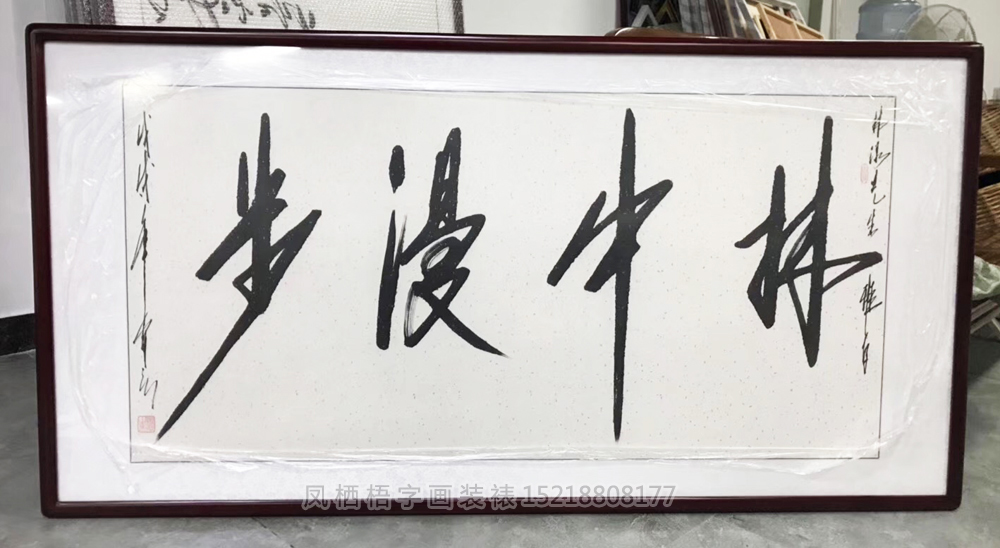 林中漫步
先生
戊戌年
凤栖梧字画装裱15218808177